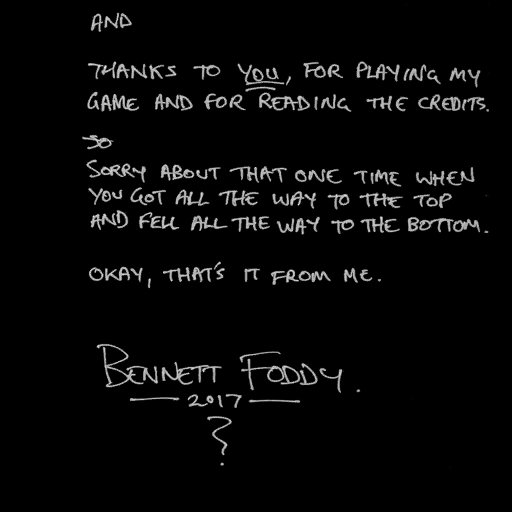 AND
THANKS TO YOU, FOR PLAYING MY
GAME AND FOR READING THE CREDITS.
SO
SORRY ABOUT THAT ONE TIME WHEN
YOU GOT ALL THE WAY TO THE TOP
AND FELL ALL THE WAY TO THE BOTTOM.
OKAY, THAT'S IT FROM ME.
BENNETT FODDY.
2017
?